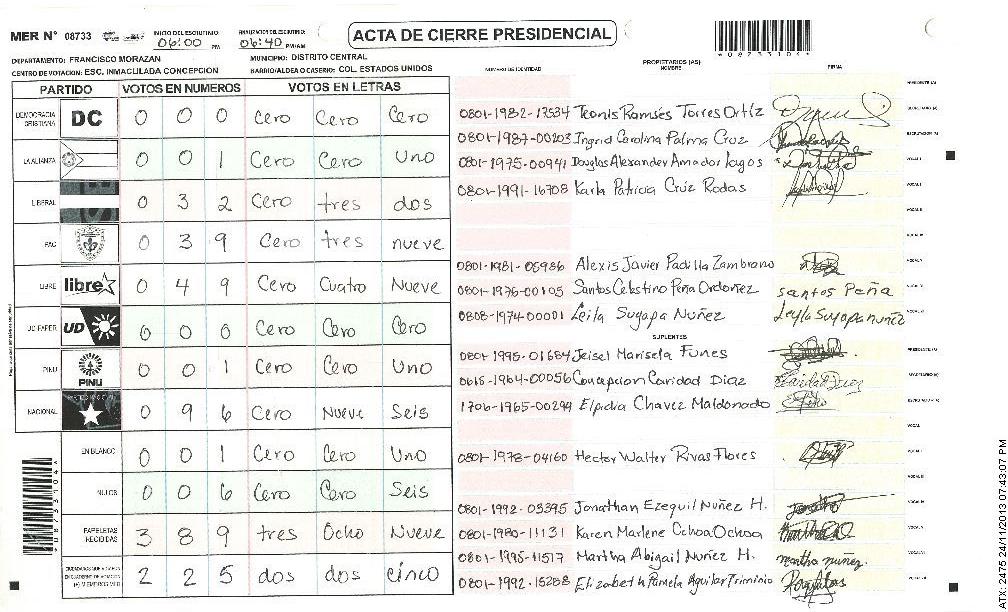 MER N° 08733 INICIO DEL ESCRUTINIO: 06:00 PM FINALIZACION DEL ESCRUTINIO: 06:40 PM/AM ACTA DE CIERRE PRESIDENCIAL
DEPARTAMENTO: FRANCISCO MORAZAN MUNICIPIO: DISTRITO CENTRAL
CENTRO DE VOTACION: ESC. INMACULADA CONCEPCION BARRIO/ALDEA O CASERIO: COL. ESTADOS UNIDOS
PARTIDO VOTOS EN NUMEROS VOTOS EN LETRAS
DEMOCRACIA CRISTIANA DC 0 0 0 Cero Cero Cero
LA ALIANZA 0 0 1 Cero Cero Uno
LIBERAL 0 3 2 Cero tres dos
PAC 0 3 9 Cero tres nueve
LIBRE libre 0 4 9 Cero Cuatro Nueve
UD-FAPER UD 0 0 0 Cero Cero Cero
PINU PINU 0 0 1 Cero Cero Uno
NACIONAL 0 9 6 Cero Nueve Seis
EN BLANCO 0 0 1 Cero Cero Uno
NULOS 0 0 6 Cero Cero Seis
PAPELETAS RECIBIDAS 3 8 9 tres Ocho Nueve
2 2 5 dos dos cinco
NUMERO DE IDENTIDAD PROPIETARIOS (AS) NOMBRE FIRMA
0801-1982-13534 Teonis Ramsés Torres Ortíz
0801-1987-00203 Ingrid Carolina Palma Cruz
0801-1975-00941 Douglas Alexander Amador Lagos
0801-1991-16708 Karla Patricia Cruz Rodas
0801-1981-05986 Alexis Javier Padilla Zambrano
0801-1976-00105 Santos Celestino Peña Ordoñez santos Peña
0808-1974-00001 Leila Suyapa Nuñez Leyla Suyapa nuñez
SUPLENTES
0801-1995-01684 Jeisel Marisela Funes
0615-1964-00056 Concepcion Caridad Diaz
1706-1965-00294 Elpidia Chavez Maldonado
0801-1978-04160 Hector Walter Rivas Flores
0801-1992-03395 Jonathan Ezequil Nuñez H.
0801-1980-11131 Karen Marlene Ochoa Ochoa
0801-1995-11517 Martha Abigail Nuñez H. martha nuñez
0801-1992-15268 Elizabeth Pamela Aguilar Triminio
*08733104*
ATX: 2475 24/11/2013 07:43:07 PM